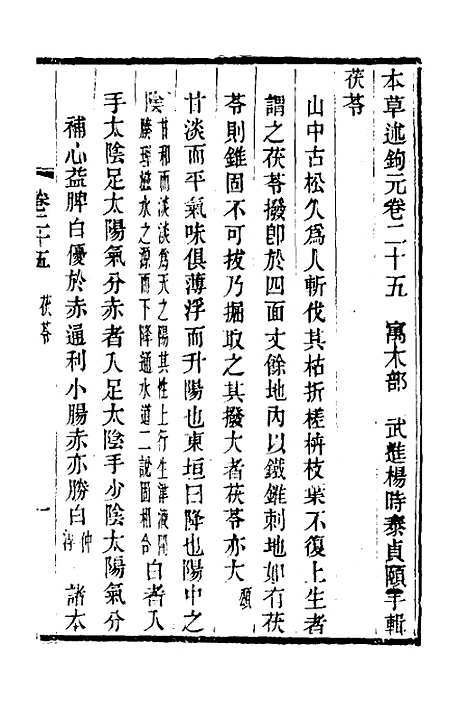 本草述鉤元卷二十五　寓木部　武進楊時泰貞頤手輯
茯苓
山中古松久爲人斬伐其枯折槎枿枝葉不復上生者
謂之茯苓撥卽於四面丈餘地內以鐵錐刺地如冇茯
苓則錐固不可拔乃掘取之其撥大者茯苓亦大頌
甘淡而平氣味俱薄浮而升陽也東垣曰降也陽中之
陰甘和而淡淡爲天之陽其性上行生津液開
腠理滋水之源而下降通水道二說固相合白者入
手太陰足太陽氣分赤者入足太陰手少陰太陽氣分
補心益脾白優於赤通利小腸赤亦勝白仲淳　諸本
卷二十五　茯苓　一